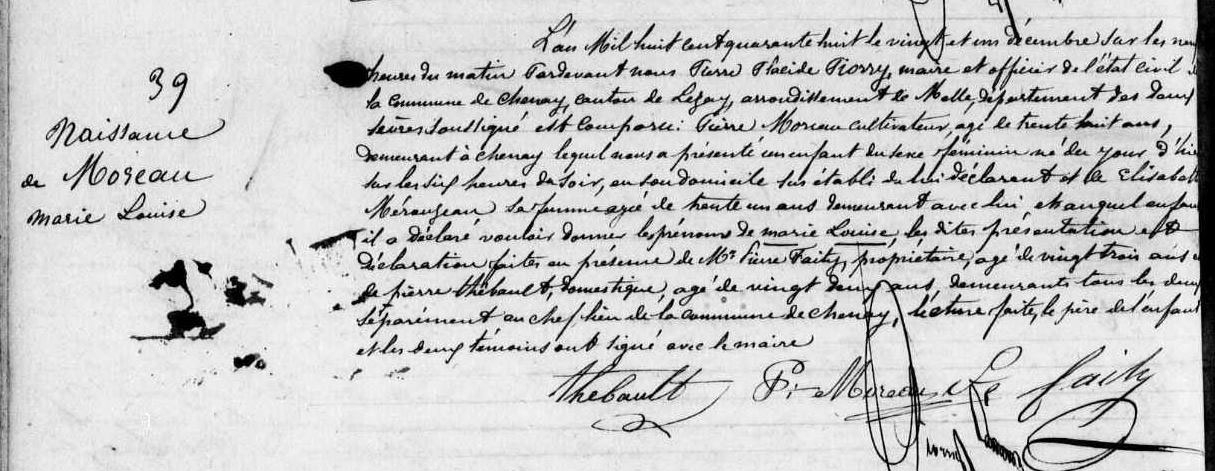 39
Naissance
de Moreau
marie Louise
L'an Mil huit cent quarante huit le vingt et un décembre sur les neuf
heures du matin Pardevant nous Pierre Placide Piorry, maire et officier de l'état civil de
la Commune de Chenay, canton de Lezay, arrondissement de Melle, département des deux
Sèvres Soussigné est Comparu: Pierre Moreau cultivateur, agé de trente huit ans,
demeurant à Chenay lequel nous a présenté un enfant du sexe féminin né du jour d'hier
sur les six heures du Soir, en son domicile sus établi de lui déclarant et de Elisabeth
Mérougeau Sa femme agée de trente un ans demeurant avec lui et auquel enfant
il a déclaré vouloir donner les prénoms de marie Louise, les dites présentation et
déclaration faites en présence de Mr Pierre Faity, propriétaire, agé de vingt trois ans et
de pierre thébault, domestique, agé de vingt deux ans, demeurants tous les deux
Séparément au chef lieu de la commune de Chenay, lecture faite, le père de l'enfant
et les deux témoins ont signé avec le maire
thebault P. Moreau faity